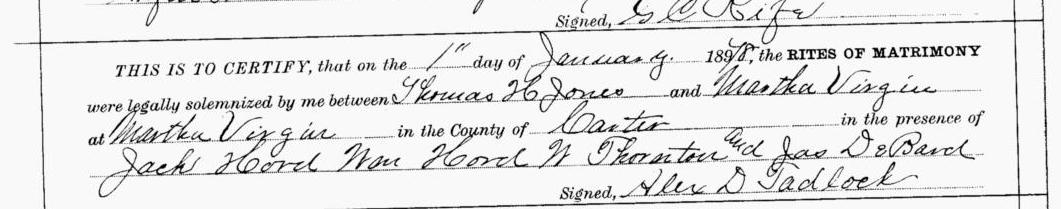 Signed, G C Rife
THIS IS TO CERTIFY, that on the 1" day of January. 1898, the RITES OF MATRIMONY
were legally solemnized by me between Thomas H Jones and Martha Virgin
at Martha Virgin in the County of Carter in the presence of
Jack Hord Wm Hord W Thornton and Jas DeBard
Signed, Alex D Tadlock